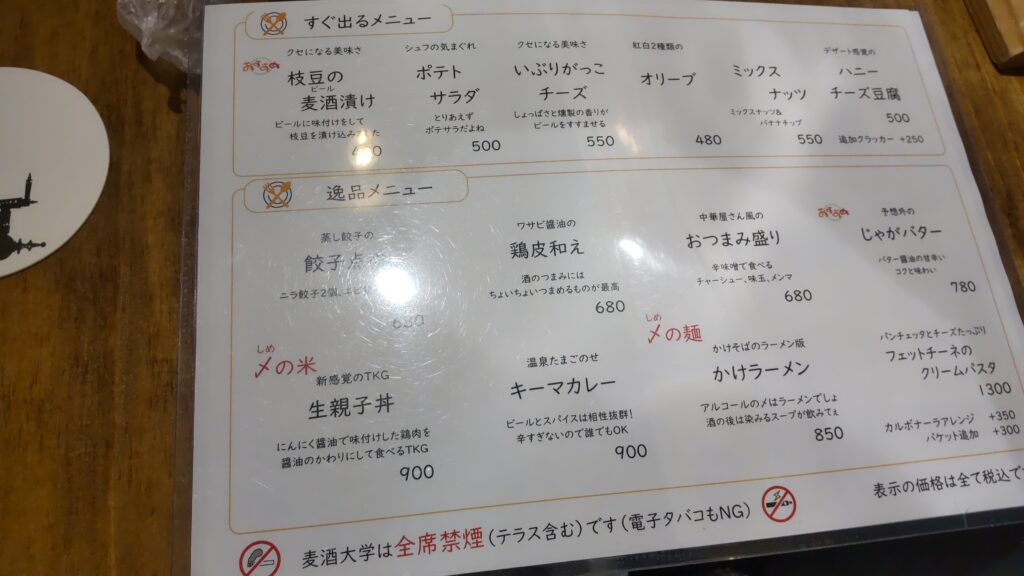 すぐ出るメニュー
おすすめ
クセになる美味さ
枝豆の
ビール
麦酒漬け
ビールに味付けをして
枝豆を漬け込みました
シェフの気まぐれ
ポテト
サラダ
とりあえず
ポテサラだよね
500
クセになる美味さ
いぶりがっこ
チーズ
しょっぱさと燻製の香りが
ビールをすすませる
550
紅白2種類の
オリーブ
480
ミックス
ナッツ
ミックスナッツ&
バナナチップ
550
デザート感覚の
ハニー
チーズ豆腐
500
追加クラッカー +250
逸品メニュー
蒸し餃子の
餃子点心
ニラ餃子2個、エビ
630
ワサビ醤油の
鶏皮和え
酒のつまみには
ちょいちょいつまめるものが最高
680
中華屋さん風の
おつまみ盛り
辛味噌で食べる
チャーシュー、味玉、メンマ
680
おすすめ
予想外の
じゃがバター
バター醤油の甘辛い
コクと味わい
780
しめ
〆の米
新感覚のTKG
生親子丼
にんにく醤油で味付けした鶏肉を
醤油のかわりにして食べるTKG
900
温泉たまごのせ
キーマカレー
ビールとスパイスは相性抜群!
辛すぎないので誰でもOK
900
しめ
〆の麺
かけそばのラーメン版
かけラーメン
アルコールの〆はラーメンでしょ
酒の後は染みるスープが飲みてぇ
850
パンチェッタとチーズたっぷり
フェットチーネの
クリームパスタ
1300
カルボナーラアレンジ +350
バケット追加 +300
表示の価格は全て税込で
麦酒大学は全席禁煙(テラス含む)です(電子タバコもNG)